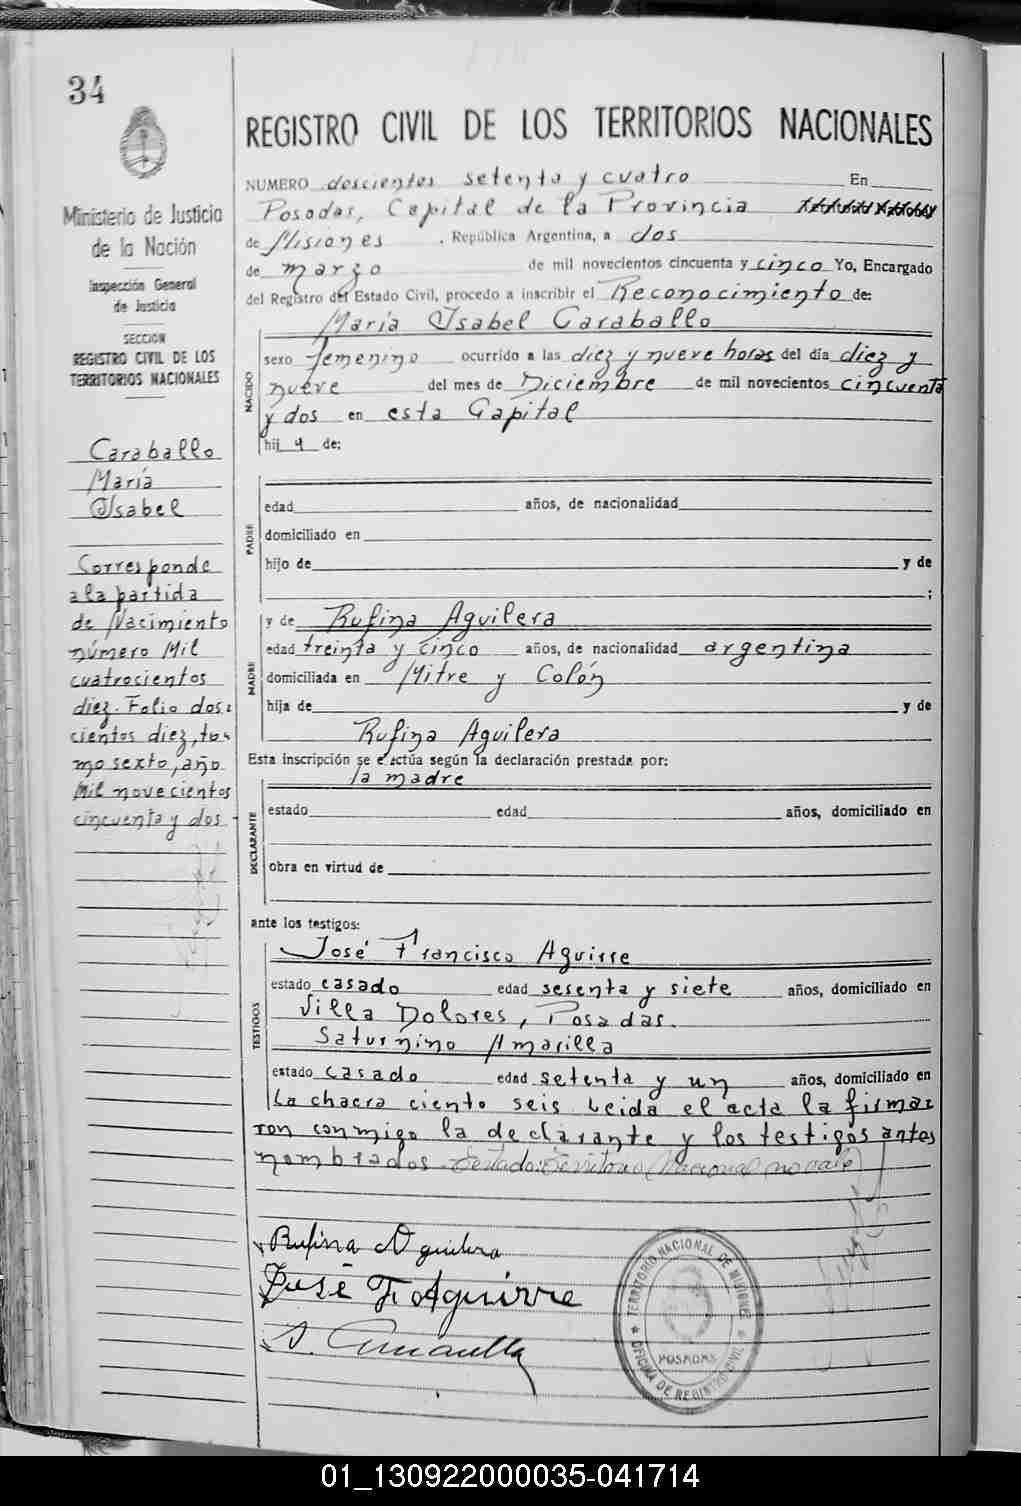 34
Ministerio de Justicia
de la Nación
Inspección General
de Justicia
SECCIÓN
REGISTRO CIVIL DE LOS
TERRITORIOS NACIONALES
Caraballo
María
Isabel
Corresponde
a la partida
de Nacimiento
número Mil
cuatrocientos
diez. Folio dos:
cientos diez, to-
mo sexto, año
Mil novecientos
cincuenta y dos -
REGISTRO CIVIL DE LOS TERRITORIOS NACIONALES
NUMERO doscientos setenta y cuatro En
Posadas, Capital de la Provincia
de Misiones . República Argentina, a dos
de marzo de mil novecientos cincuenta y cinco Yo, Encargado
del Registro del Estado Civil, procedo a inscribir el Reconocimiento de:
María Isabel Caraballo
NACIDO
sexo femenino ocurrido a las diez y nueve horas del día diez y
nueve del mes de Diciembre de mil novecientos cincuenta
y dos en esta Capital
hija de:
PADRE
edad años, de nacionalidad
domiciliado en
hijo de y de
;
MADRE
y de Rufina Aguilera
edad treinta y cinco años, de nacionalidad argentina
domiciliada en Mitre y Colón
hija de y de
Rufina Aguilera
Esta inscripción se efectúa según la declaración prestada por:
la madre
DECLARANTE
estado edad años, domiciliado en
obra en virtud de
ante los testigos:
TESTIGOS
José Francisco Aguirre
estado casado edad sesenta y siete años, domiciliado en
Villa Dolores, Posadas.
Saturnino Amarilla
estado casado edad setenta y un años, domiciliado en
La chacra ciento seis Leida el acta la firmar
ron conmigo la declarante y los testigos antes
nombrados. Testado: Territorio Nacional no vale
Rufina Aguilera
José F. Aguirre
S. Amarilla
TERRITORIO NACIONAL DE MISIONES
POSADAS
OFICINA DE REGISTRO CIVIL
01_130922000035-041714